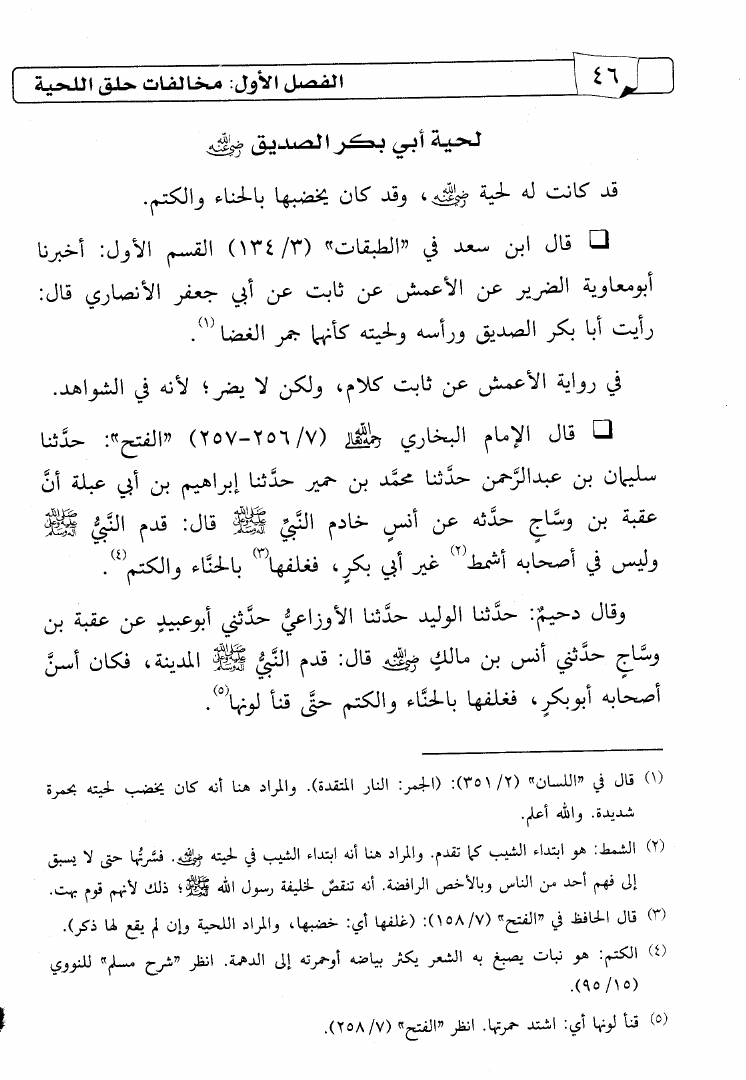 ٤٦
الفصل الأول: مخالفات حلق اللحية
لحية أبي بكر الصديق رضي الله عنه
قد كانت له لحية رضي الله عنه، وقد كان يخضبها بالحناء والكتم.
❑ قال ابن سعد في «الطبقات» (٣/ ١٣٤) القسم الأول: أخبرنا
أبومعاوية الضرير عن الأعمش عن ثابت عن أبي جعفر الأنصاري قال:
رأيت أبا بكر الصديق ورأسه ولحيته كأنهما جمر الغضا(١).
في رواية الأعمش عن ثابت كلام، ولكن لا يضر؛ لأنه في الشواهد.
❑ قال الإمام البخاري رحمه الله تعالى (٧/ ٢٥٦-٢٥٧) «الفتح»: حدَّثنا
سليمان بن عبدالرَّحمن حدَّثنا محمَّد بن حمير حدَّثنا إبراهيم بن أبي عبلة أنَّ
عقبة بن وسَّاجٍ حدَّثه عن أنسٍ خادم النَّبيِّ ﷺ قال: قدم النَّبيُّ ﷺ
وليس في أصحابه أشمط(٢) غير أبي بكرٍ، فغلفها(٣) بالحنَّاء والكتم(٤).
وقال دحيمٌ: حدَّثنا الوليد حدَّثنا الأوزاعيُّ حدَّثني أبوعبيدٍ عن عقبة بن
وسَّاجٍ حدَّثني أنس بن مالكٍ رضي الله عنه قال: قدم النَّبيُّ ﷺ المدينة، فكان أسنَّ
أصحابه أبوبكرٍ، فغلفها بالحنَّاء والكتم حتَّى قنأ لونها(٥).
(١) قال في «اللسان» (٢/ ٣٥١): (الجمر: النار المتقدة). والمراد هنا أنه كان يخضب لحيته بحمرة
شديدة. والله أعلم.
(٢) الشمط: هو ابتداء الشيب كما تقدم. والمراد هنا أنه ابتداء الشيب في لحيته رضي الله عنه. فسَّرتُها حتى لا يسبق
إلى فهم أحد من الناس وبالأخص الرافضة. أنه تنقصٌ لخليفة رسول الله ﷺ؛ ذلك لأنهم قوم بهت.
(٣) قال الحافظ في «الفتح» (٧/ ١٥٨): (غلفها أي: خضبها، والمراد اللحية وإن لم يقع لها ذكر).
(٤) الكتم: هو نبات يصبغ به الشعر يكثر بياضه أوحمرته إلى الدهمة. انظر «شرح مسلم» للنووي
(١٥/ ٩٥).
(٥) قنأ لونها أي: اشتد حمرتها. انظر «الفتح» (٧/ ٢٥٨).